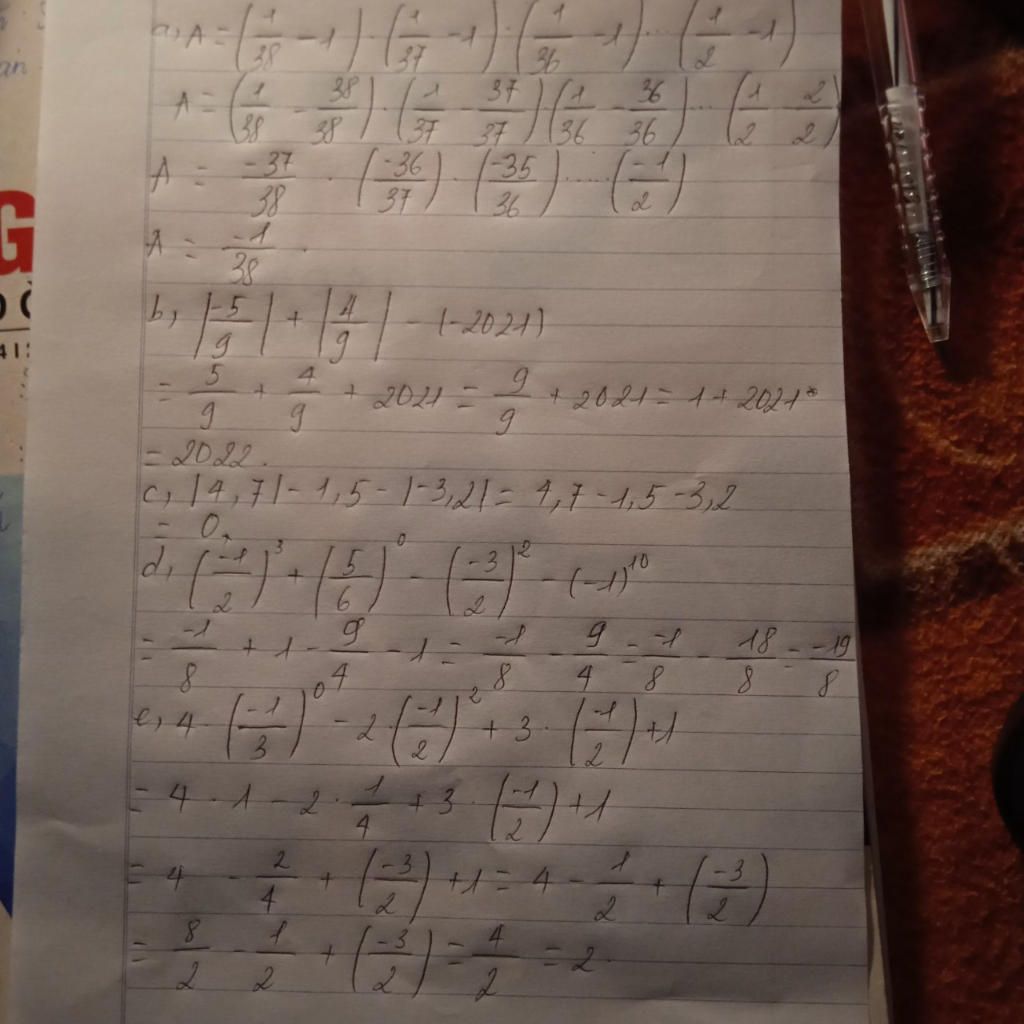 a, A = (1/38 - 1) · (1/37 - 1) · (1/36 - 1) ... (1/2 - 1)
A = (1/38 - 38/38) · (1/37 - 37/37) (1/36 - 36/36) ... (1/2 - 2/2)
A = -37/38 · (-36/37) · (-35/36) ..... (-1/2)
A = -1/38 .
b, |-5/9| + |4/9| - (-2021)
= 5/9 + 4/9 + 2021 = 9/9 + 2021 = 1 + 2021
= 2022.
c, |4,7| - 1,5 - |-3,2| = 4,7 - 1,5 - 3,2
= 0.
d, (-1/2)^3 + (5/6)^0 - (-3/2)^2 - (-1)^10
= -1/8 + 1 - 9/4 - 1 = -1/8 - 9/4 = -1/8 - 18/8 = -19/8
e, 4 · (-1/3)^0 - 2 · (-1/2)^2 + 3 · (-1/2) + 1
= 4 · 1 - 2 · 1/4 + 3 · (-1/2) + 1
= 4 - 2/4 + (-3/2) + 1 = 4 - 1/2 + (-3/2)
= 8/2 - 1/2 + (-3/2) = 4/2 = 2.
G